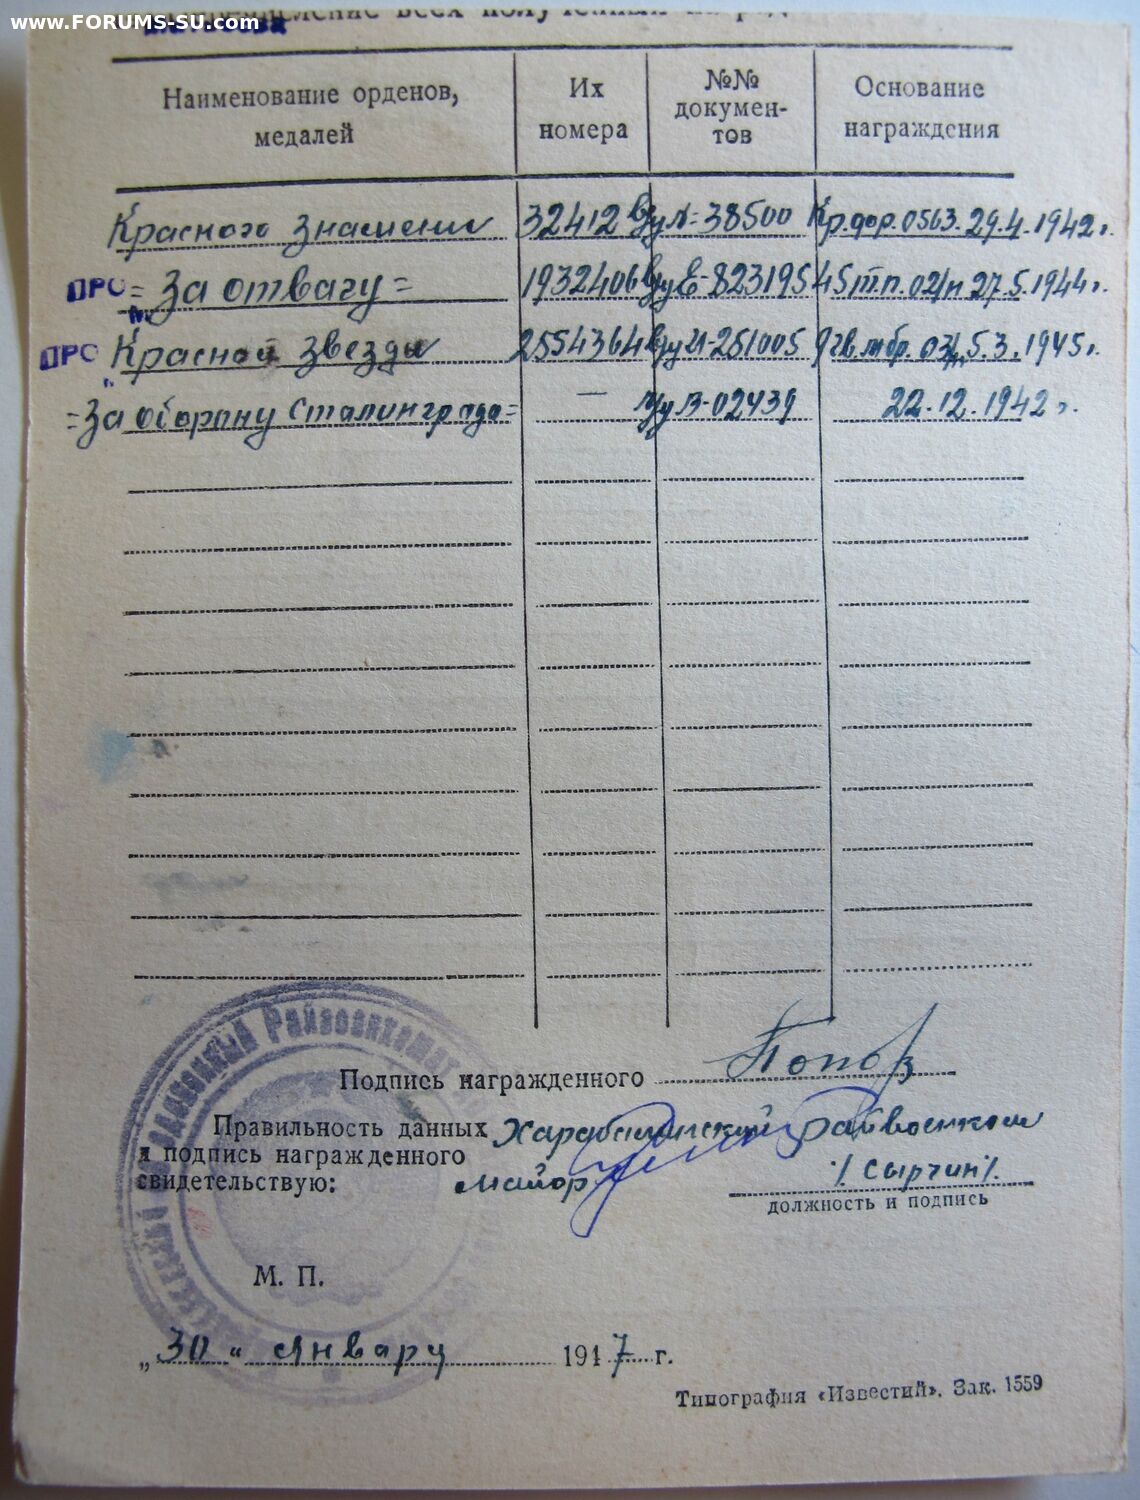 www.FORUMS-SU.com
всех полученных
Наименование орденов, медалей
Их номера
№№ докумен-тов
Основание награждения
Красного Знамени 32412 в/у № 38500 Кр.фор. 0563. 29.4.1942г.
ПРО = За отвагу = 1932406 в/у Е-823195 45 тп. 02/н 27.5.1944г.
ПРО Красной звезды 2554364 в/у 251005 9 гв. тбр. 03/н 5.3.1945г.
=За оборону Сталинграда= — у В-02439 22.12.1942г.
Подпись награжденного Попов
Правильность данных Харабалинский Райвоенком
и подпись награжденного
свидетельствую: майор /Сырчин/.
должность и подпись
Райвоенкомат
М. П.
„30“ январу 1947 г.
Типография «Известий». Зак. 1559